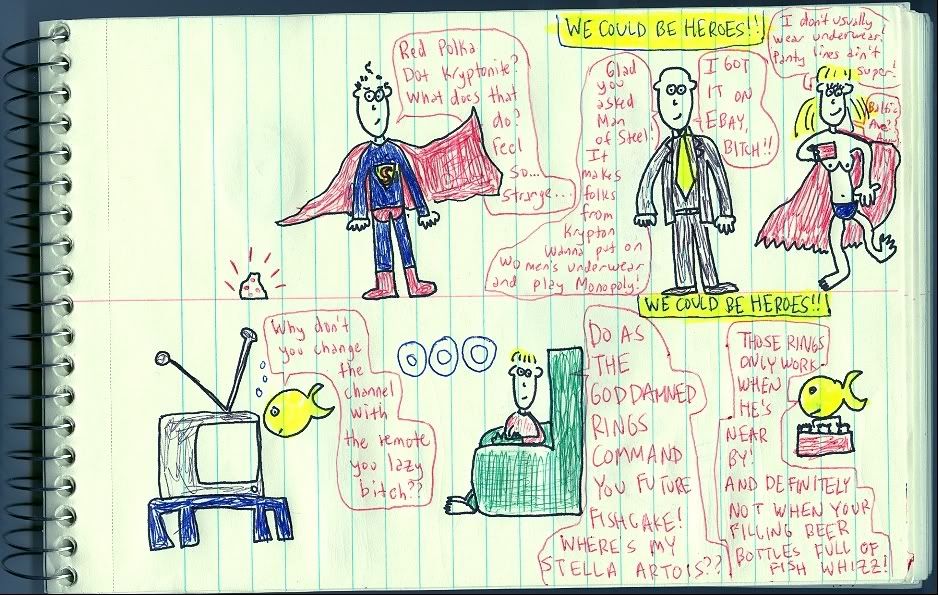 WE COULD BE HEROES!!
Red Polka
Dot Kryptonite?
What does that
do?
Feel
so...
strange...
Glad
you
asked
Man
of Steel!
It
makes
folks
from
Krypton
wanna put on
women's underwear
and play Monopoly!
I GOT
IT ON
EBAY,
BITCH!!
I don't usually
wear underwear!
Panty lines ain't
super!
Baltic
Ave?
S
WE COULD BE HEROES!!
Why don't
you change
the
channel
with
the remote
you lazy
bitch??
DO AS
THE
GODDAMNED
RINGS
COMMAND
YOU FUTURE
FISHCAKE!
WHERE'S MY
STELLA ARTOIS??
THOSE RINGS
ONLY WORK
WHEN
HE'S
NEAR
BY!
AND DEFINITELY
NOT WHEN YOUR
FILLING BEER
BOTTLES FULL OF
FISH WHIZZ!